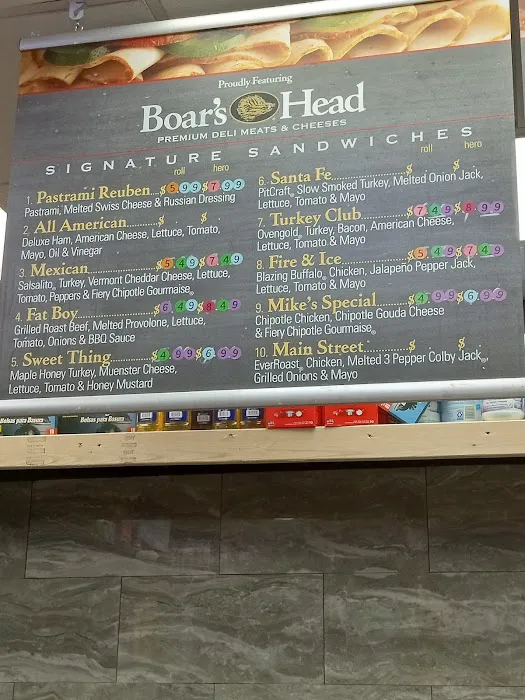 Proudly Featuring
Boar's Head
PREMIUM DELI MEATS & CHEESES
SIGNATURE SANDWICHES
roll hero
1. Pastrami Reuben...$5.99 $7.99
Pastrami, Melted Swiss Cheese & Russian Dressing
2. All American $ $
Deluxe Ham, American Cheese, Lettuce, Tomato,
Mayo, Oil & Vinegar
3. Mexican $5.49 $7.49
Salsalito, Turkey, Vermont Cheddar Cheese, Lettuce,
Tomato, Peppers & Fiery Chipotle Gourmaise
4. Fat Boy $6.49 $8.49
Grilled Roast Beef, Melted Provolone, Lettuce,
Tomato, Onions & BBQ Sauce
5. Sweet Thing $4.99 $6.99
Maple Honey Turkey, Muenster Cheese,
Lettuce, Tomato & Honey Mustard
roll hero
6. Santa Fe $ $
PitCraft, Slow Smoked Turkey, Melted Onion Jack,
Lettuce, Tomato & Mayo
7. Turkey Club $7.49 $8.99
Ovengold, Turkey, Bacon, American Cheese,
Lettuce, Tomato & Mayo
8. Fire & Ice $5.49 $7.49
Blazing Buffalo, Chicken, Jalapeño Pepper Jack,
Lettuce, Tomato & Mayo
9. Mike's Special $4.99 $6.99
Chipotle Chicken, Chipotle Gouda Cheese
& Fiery Chipotle Gourmaise
10. Main Street $ $
EverRoast, Chicken, Melted 3 Pepper Colby Jack,
Grilled Onions & Mayo
Bolsas para Basura
Bolsas para Basura